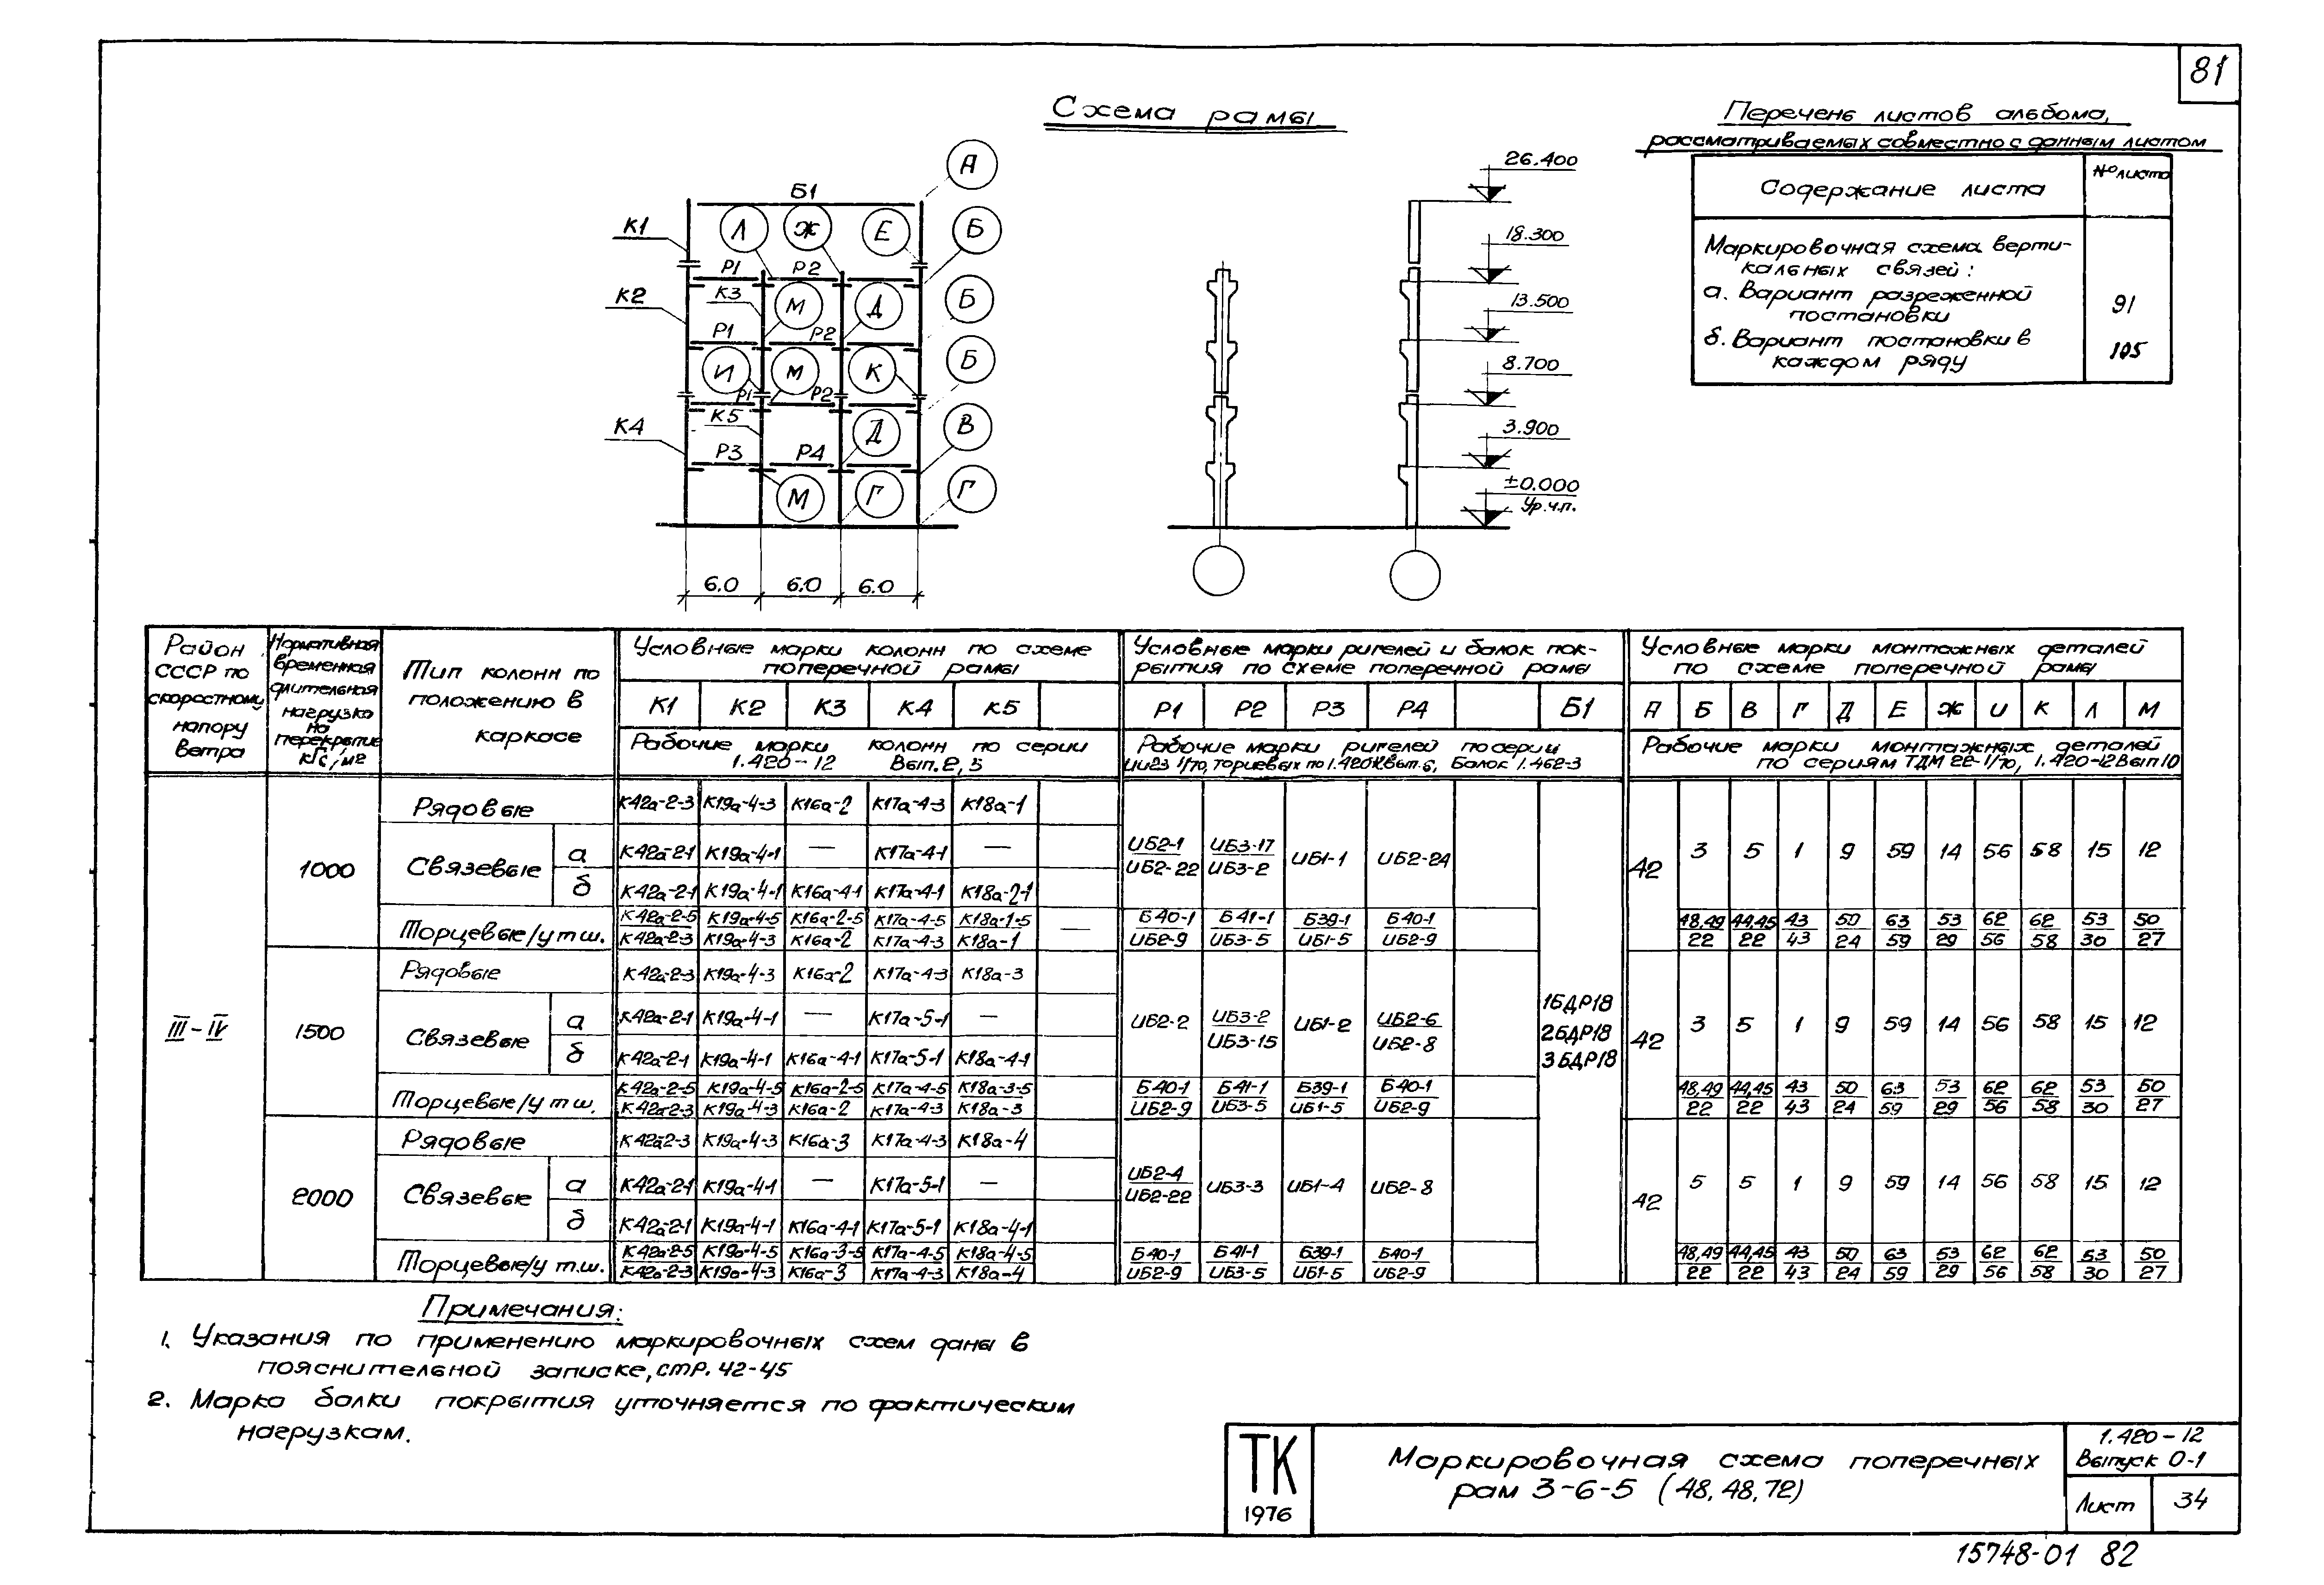 81
Схема рамы
Перечень листов альбома,
рассматриваемых совместно с данным листом
Содержание листа
№ листа
Маркировочная схема верти-
кальных связей:
а. Вариант разреженной
постановки
91
б. Вариант постановки в
каждом ряду
105
Б1
А
К1
Л
Ж
Е
Б
Р1
Р2
К2
К3
М
Д
Б
Р1
Р2
И
М
К
Б
Р1
Р2
К4
К5
Д
В
Р3
Р4
М
Г
Г
6.0
6.0
6.0
26.400
18.300
13.500
8.700
3.900
±0.000
Ур.ч.п.
Район СССР по скоростному напору ветра
Нормативная временная длительная нагрузка на перекрытие кГс/м2
Тип колонн по положению в каркасе
Условные марки колонн по схеме
поперечной рамы
К1 К2 К3 К4 К5
Рабочие марки колонн по серии
1.420-12 Вып. 2, 5
Условные марки ригелей и балок пок-
рытия по схеме поперечной рамы
Р1 Р2 Р3 Р4 Б1
Рабочие марки ригелей по серии
ИИ23 1/70, торцевых по 1.420-12 вып. 6, Балок 1.462-3
Условные марки монтажных деталей
по схеме поперечной рамы
А Б В Г Д Е Ж И К Л М
Рабочие марки монтажных деталей
по сериям ТДМ 22-1/70, 1.420-12 Вып 10
III-IV
1000
Рядовые К42а-2-3 К19а-4-3 К16а-2 К17а-4-3 К18а-1
Связевые
а К42а-2-1 К19а-4-1 — К17а-4-1 —
б К42а-2-1 К19а-4-1 К16а-4-1 К17а-4-1 К18а-2-1
ИБ2-1 ИБ3-17
ИБ2-22 ИБ3-2
ИБ1-1 ИБ2-24
42 3 5 1 9 59 14 56 58 15 12
Торцевые/у т.ш.
К42а-2-5 К19а-4-5 К16а-2-5 К17а-4-5 К18а-1-5 —
К42а-2-3 К19а-4-3 К16а-2 К17а-4-3 К18а-1
Б40-1 Б41-1 Б39-1 Б40-1
ИБ2-9 ИБ3-5 ИБ1-5 ИБ2-9
48,49 44,45 43 50 63 53 62 62 53 50
22 22 43 24 59 29 56 58 30 27
1500
Рядовые К42а-2-3 К19а-4-3 К16а-2 К17а-4-3 К18а-3
Связевые
а К42а-2-1 К19а-4-1 — К17а-5-1 —
б К42а-2-1 К19а-4-1 К16а-4-1 К17а-5-1 К18а-4-1
ИБ2-2
ИБ3-2
ИБ3-15
ИБ1-2
ИБ2-6
ИБ2-8
1БДР18
2БДР18
3БДР18
42 3 5 1 9 59 14 56 58 15 12
Торцевые/у т.ш.
К42а-2-5 К19а-4-5 К16а-2-5 К17а-4-5 К18а-3-5
К42а-2-3 К19а-4-3 К16а-2 К17а-4-3 К18а-3
Б40-1 Б41-1 Б39-1 Б40-1
ИБ2-9 ИБ3-5 ИБ1-5 ИБ2-9
48,49 44,45 43 50 63 53 62 62 53 50
22 22 43 24 59 29 56 58 30 27
2000
Рядовые К42а-2-3 К19а-4-3 К16а-3 К17а-4-3 К18а-4
Связевые
а К42а-2-1 К19а-4-1 — К17а-5-1 —
б К42а-2-1 К19а-4-1 К16а-4-1 К17а-5-1 К18а-4-1
ИБ2-4
ИБ2-22
ИБ3-3 ИБ1-4 ИБ2-8
42 5 5 1 9 59 14 56 58 15 12
Торцевые/у т.ш.
К42а-2-5 К19а-4-5 К16а-3-5 К17а-4-5 К18а-4-5
К42а-2-3 К19а-4-3 К16а-3 К17а-4-3 К18а-4
Б40-1 Б41-1 Б39-1 Б40-1
ИБ2-9 ИБ3-5 ИБ1-5 ИБ2-9
48,49 44,45 43 50 63 53 62 62 53 50
22 22 43 24 59 29 56 58 30 27
Примечания:
1. Указания по применению маркировочных схем даны в
пояснительной записке, стр. 42-45
2. Марка балки покрытия уточняется по фактическим
нагрузкам.
ТК
1976
Маркировочная схема поперечных
рам 3-6-5 (48, 48, 72)
1.420-12
Выпуск 0-1
Лист 34
15748-01 82